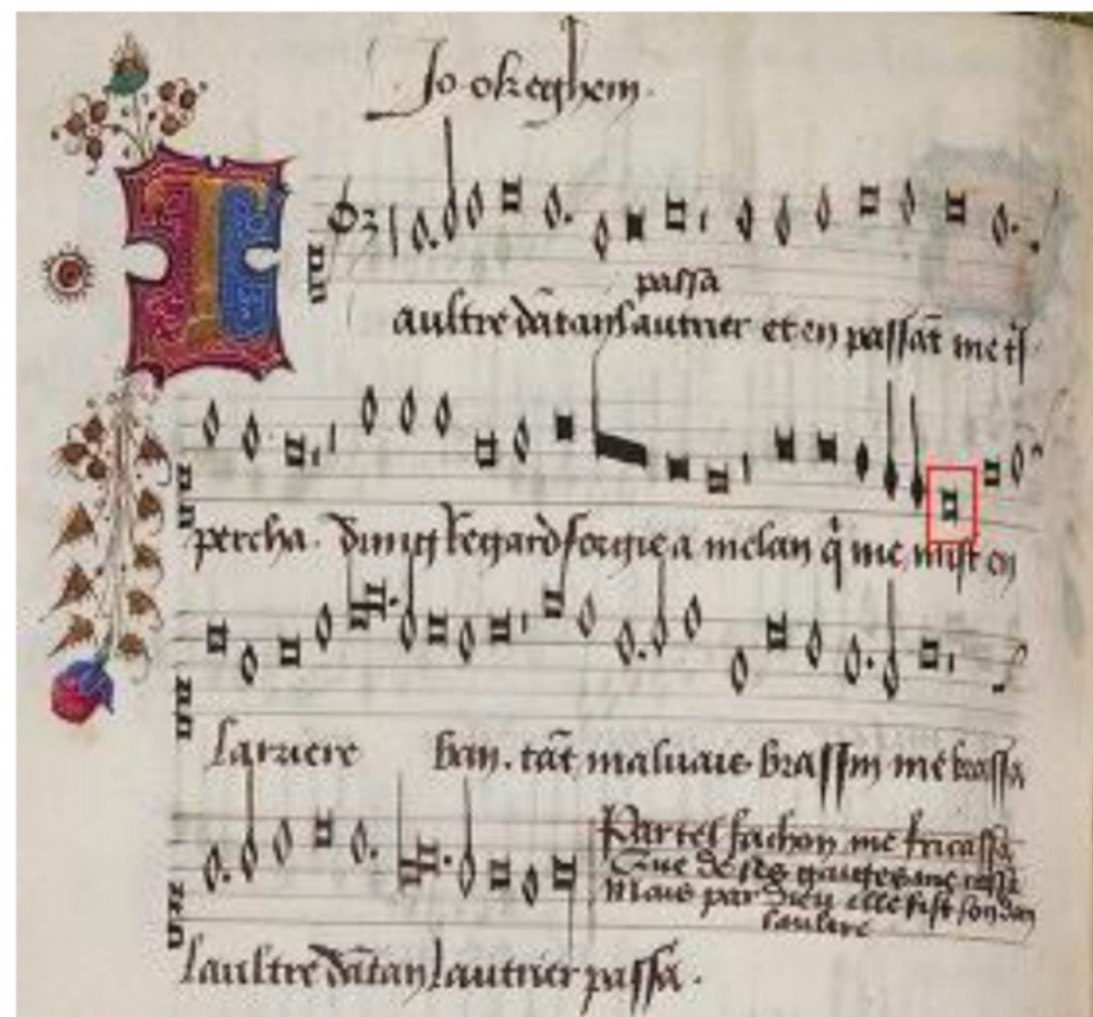 Jo. okeghem.
L
passa
aultre dātan lautrier et en passāt me t
percha. dung regard forgie a melan q̄ me mist en
larriere ban. tāt maluais brassin me brassa
Par tel fachon me fricassa
Que de ses gaiges me cassa
Mais par dieu elle fist son dan
laultre
Laultre dātan lautrier passa.